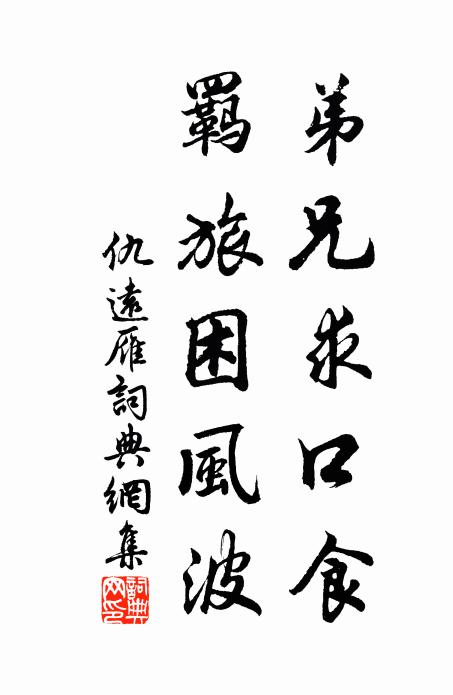 弟兄求口食
羈旅困風波
仇遠雁詞典網集
詞典網印